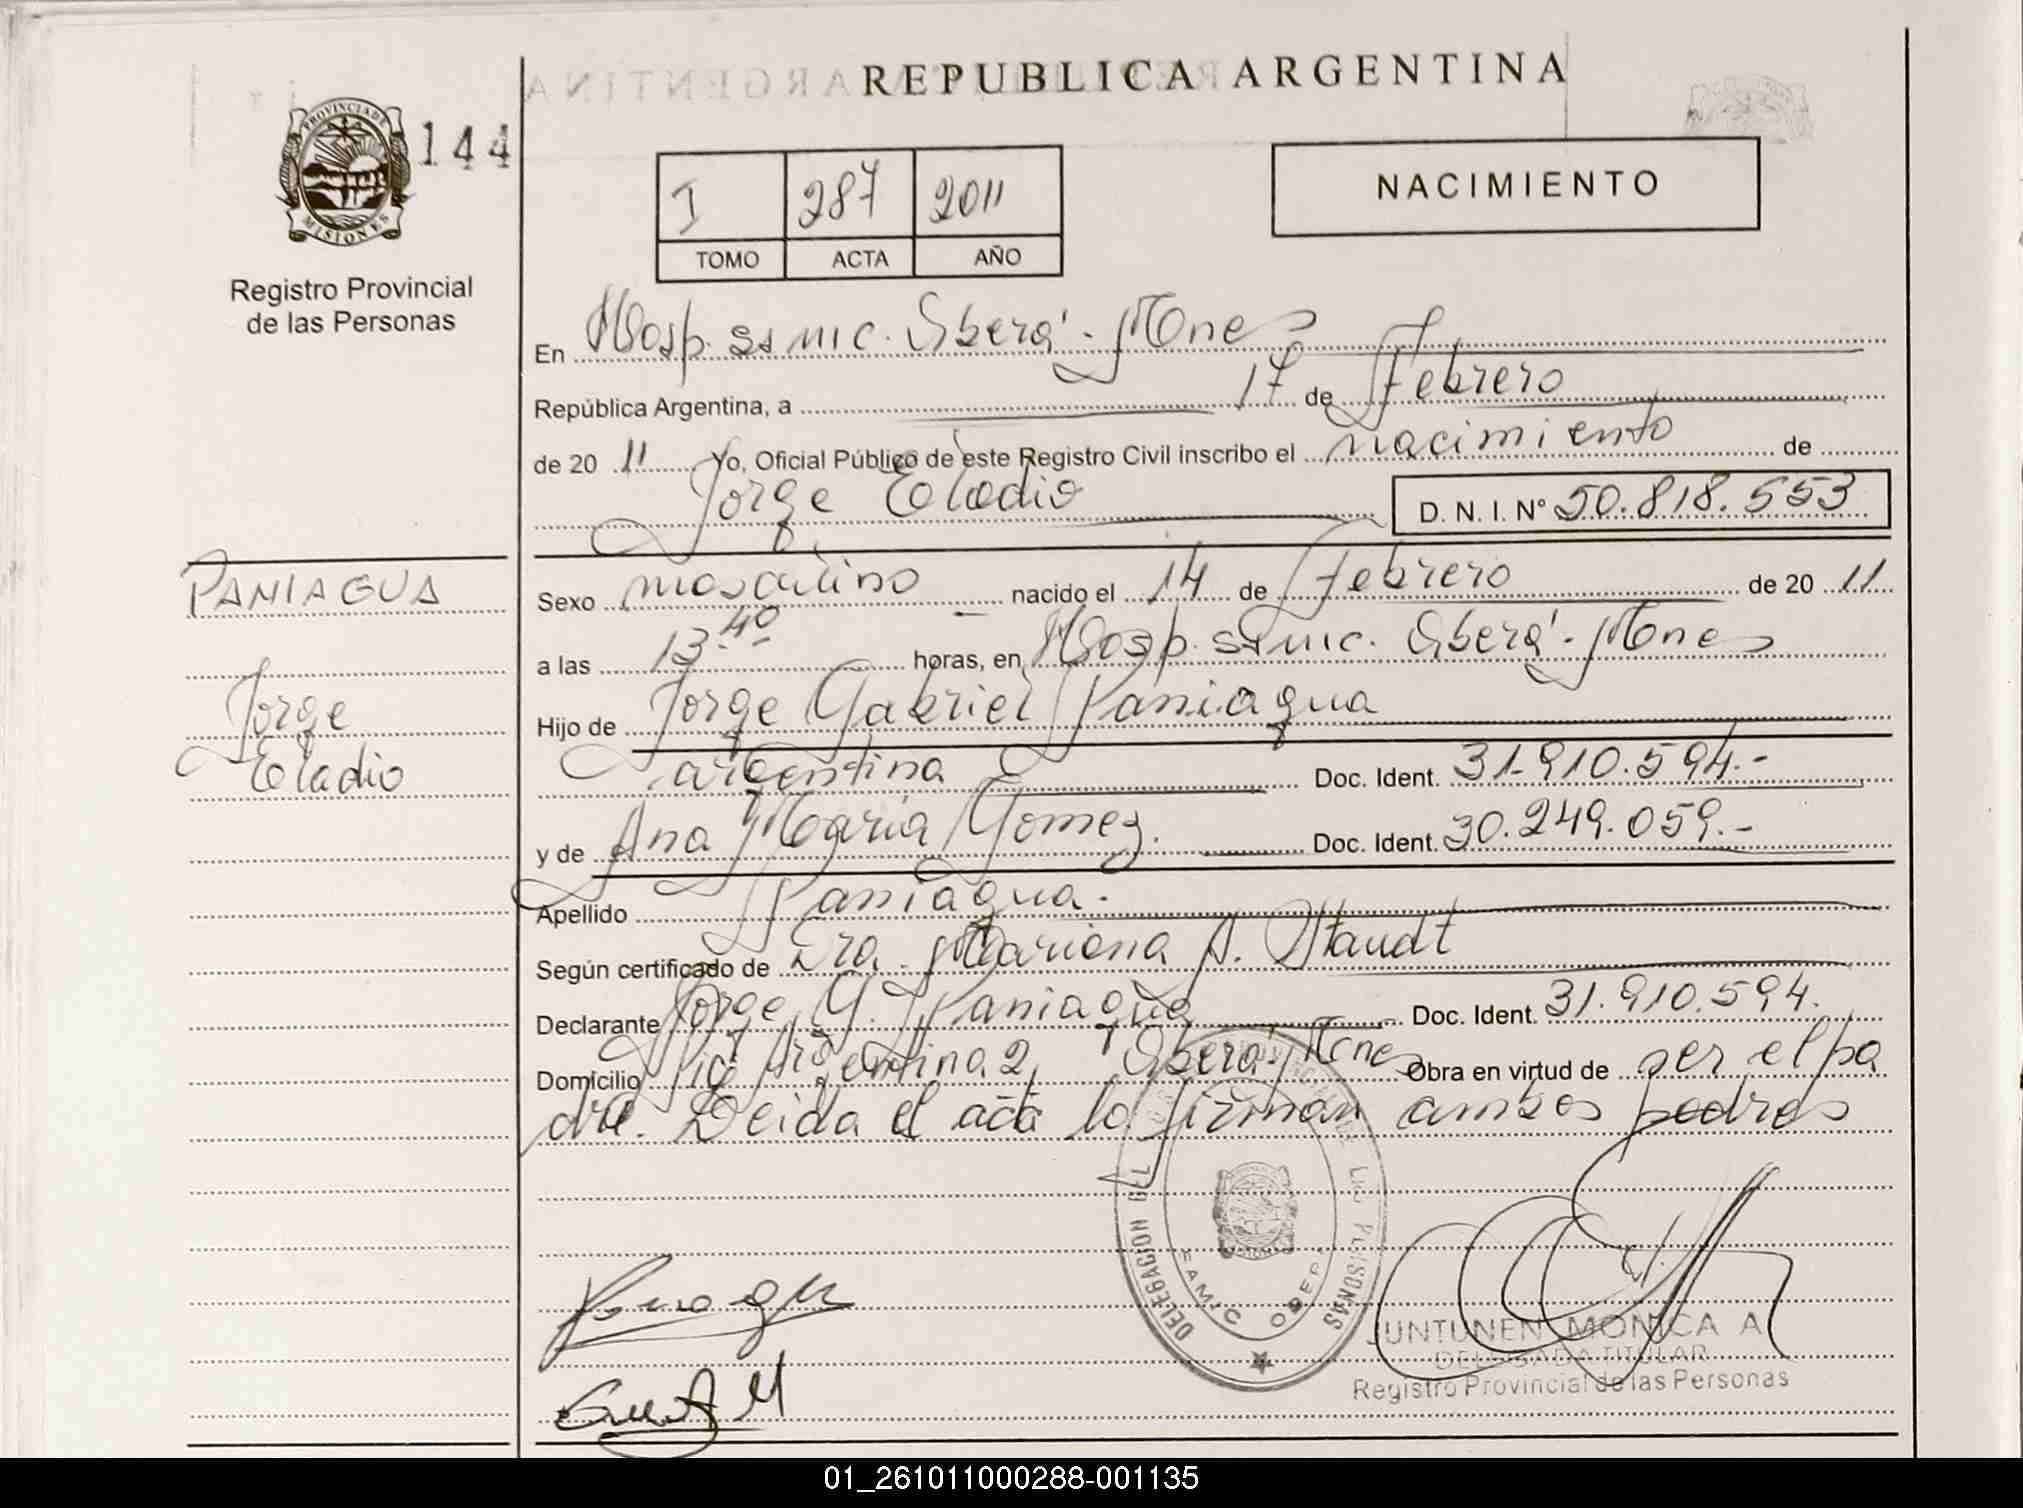 REPUBLICA ARGENTINA
PROVINCIA DE
MISIONES
144
Registro Provincial
de las Personas
I 287 2011
TOMO ACTA AÑO
NACIMIENTO
En Hosp. ss mic. Oberá - Mnes
República Argentina, a 17 de Febrero
de 20 11 Yo, Oficial Público de este Registro Civil inscribo el nacimiento de
Jorge Eladio D. N. I. N° 50.818.553
PANIAGUA
Jorge
Eladio
Sexo masculino nacido el 14 de Febrero de 20 11
a las 13.40 horas, en Hosp. ss mic. Oberá - Mnes
Hijo de Jorge Gabriel Paniagua
argentina Doc. Ident. 31.910.594.-
y de Ana Maria Gomez. Doc. Ident. 30.249.059.-
Apellido Paniagua.
Según certificado de Dra. Mariana A. Staudt
Declarante Jorge G. Paniagua Doc. Ident. 31.910.594.
Domicilio Argentina 2, Oberá - Mnes Obra en virtud de ser el pa
dre. Leida el acta la firman ambos padres
DELEGACION DEL PERSONAS
SAMIC OBERA
JUNTUNEN MONICA A
DELEGADA TITULAR
Registro Provincial de las Personas
01_261011000288-001135